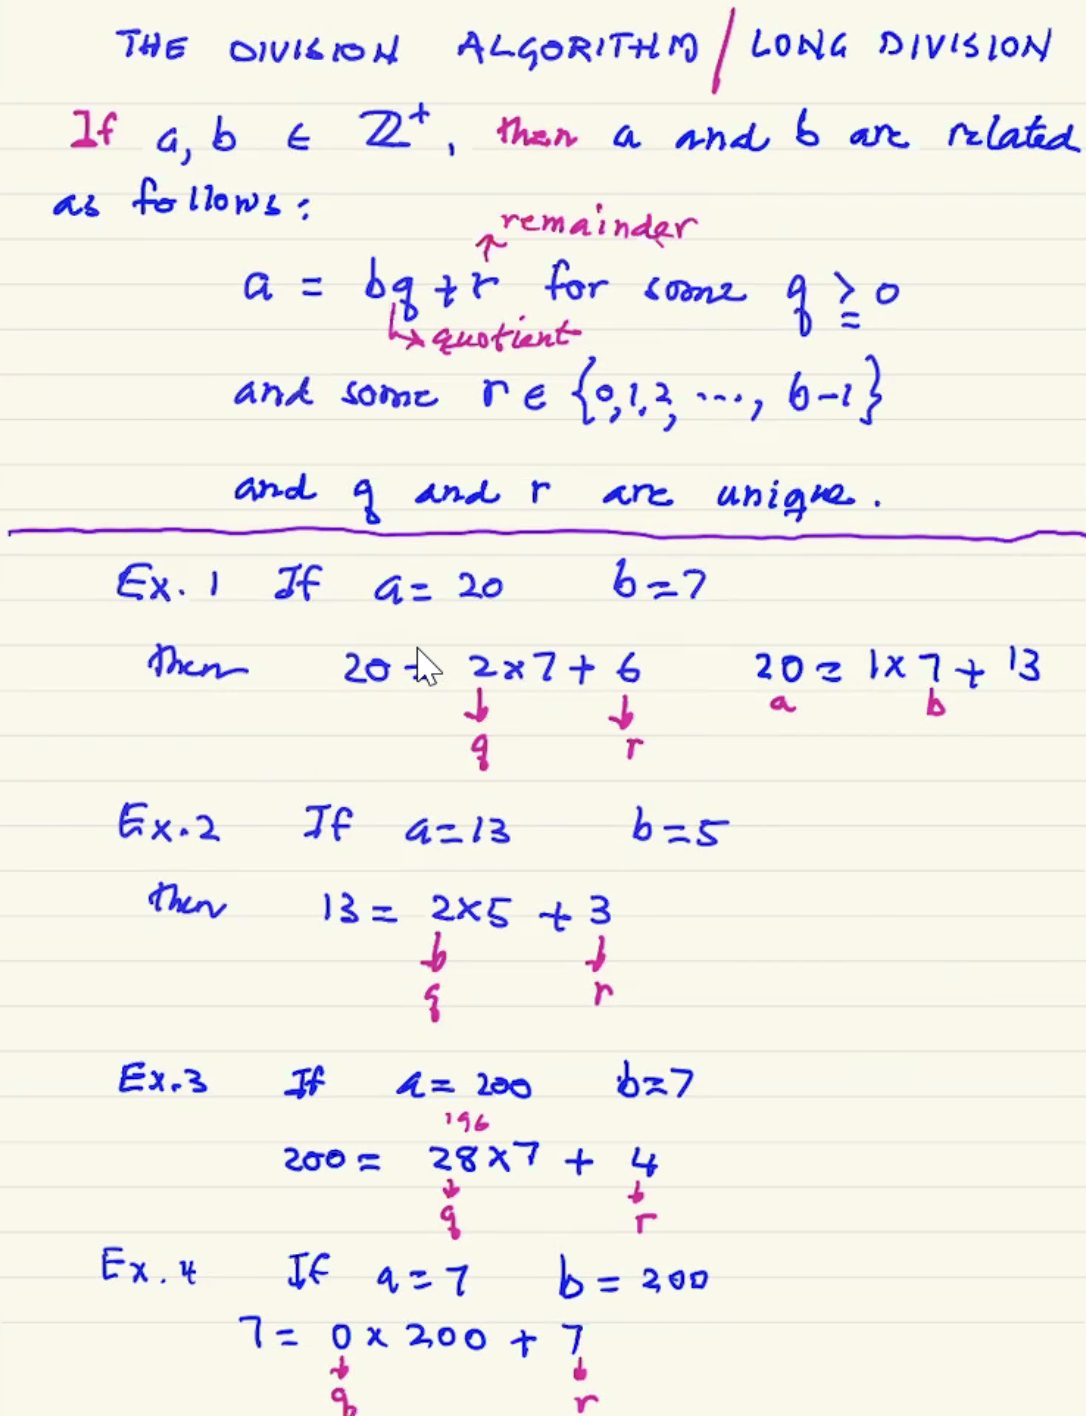 THE DIVISION ALGORITHM / LONG DIVISION
If a, b ∈ ℤ⁺, then a and b are related
as follows:
remainder
a = bq + r for some q ≥ 0
quotient
and some r ∈ {0, 1, 2, ..., b-1}
and q and r are unique.
Ex. 1 If a = 20 b = 7
then 20 = 2 × 7 + 6 20 = 1 × 7 + 13
q r a b
Ex. 2 If a = 13 b = 5
then 13 = 2 × 5 + 3
q r
Ex. 3 If a = 200 b = 7
196
200 = 28 × 7 + 4
q r
Ex. 4 If a = 7 b = 200
7 = 0 × 200 + 7
q r